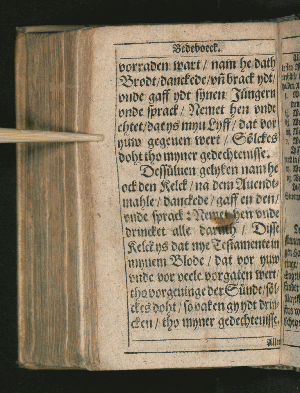 Bedeboeck.
vorraden wart / nam he dath
Brodt / danckede / vñ brack ydt /
vnde gaff ydt synen Jüngern
vnde sprack / Nemet hen vnde
ehtet / dat ys myn Lyff / dat vor
yuw gegeuen wert / Sölckes
doht tho myner gedechtenisse.
Dessüluen gelyken nam he
ock den Kelck / na dem Auendt-
mahle / danckede / gaff en den /
vnde sprack: Nemet hen vnde
drincket alle daruth / Disse
Kelck ys dat nye Testamente in
mynem Blode / dat vor yuw
vnde vor veele vorgaten wert /
tho vorgeuinge der Sünde / söl-
ckes doht / so vaken gy ydt drin-
cken / tho myner gedechtenisse.